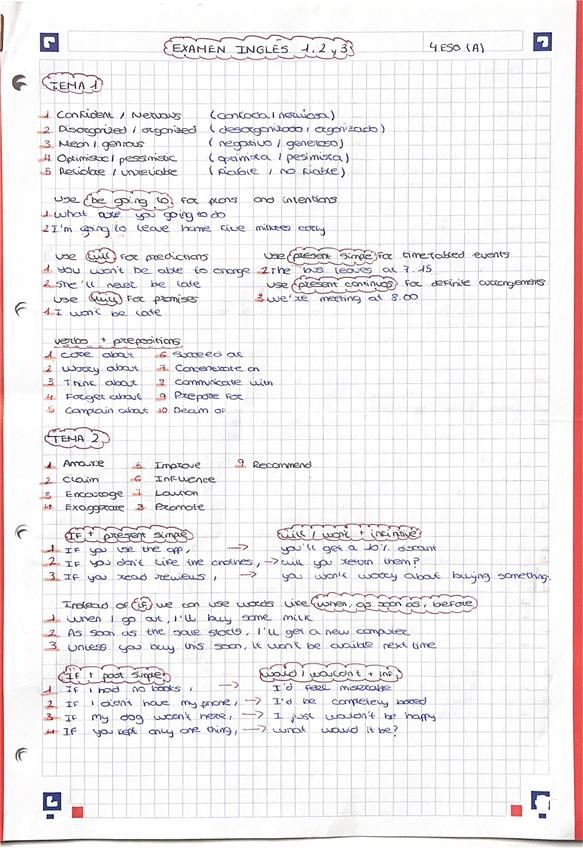 EXAMEN INGLÉS 1, 2 y 3
4 ESO (A)
TEMA 1
1 Confident / Nervous (confiada / nerviosa)
2 Disorganized / organized (desorganizado / organizado)
3 Mean / genrous (negativo / generoso)
4 Optimistic / pessimistic (optimista / pesimista)
5 Reliable / unreliable (fiable / no fiable)
Use be going to for plans and intentions
1. What are you going to do
2 I'm going to leave home five minutes early
Use will for predictions
1 You won't be able to change
2 She'll never be late
Use will for promises
1. I won't be late
Use present simple for timetabled events
2 The bus leaves at 7.15
Use present continuos for definite arrangements
3. We're meeting at 8.00
verbs + prepositions
1. Care about 6 Succeed at
2 Worry about 7 Concentrate on
3 Think about 8 Communicate with
4 Forget about 9 Prepare for
5 Complain about 10 Dream of
TEMA 2
1 5 Improve 9 Recommend
2 Claim 6 Influence
3 Encourage 7
4 Exaggerate 8 Promote
If + present simple will / won't + infinitive
1 If you use the app, → you'll get a 10% discount
2 If you don't like the clothes, → will you return them?
3 If you read reviews, → you won't worry about buying something.
Instead of if we can use words like when, as soon as, before
1. When I go out, I'll buy some milk
2. As soon as the sale starts, I'll get a new computer
3. Unless you buy this soon, it won't be next time
If + past simple would / wouldn't + inf.
1 If I had no books, → I'd feel miserable
2 If I didn't have my phone, → I'd be completely bored
3 If my dog weren't here, → I just wouldn't be happy
4 If you kept only one thing, → what would it be?